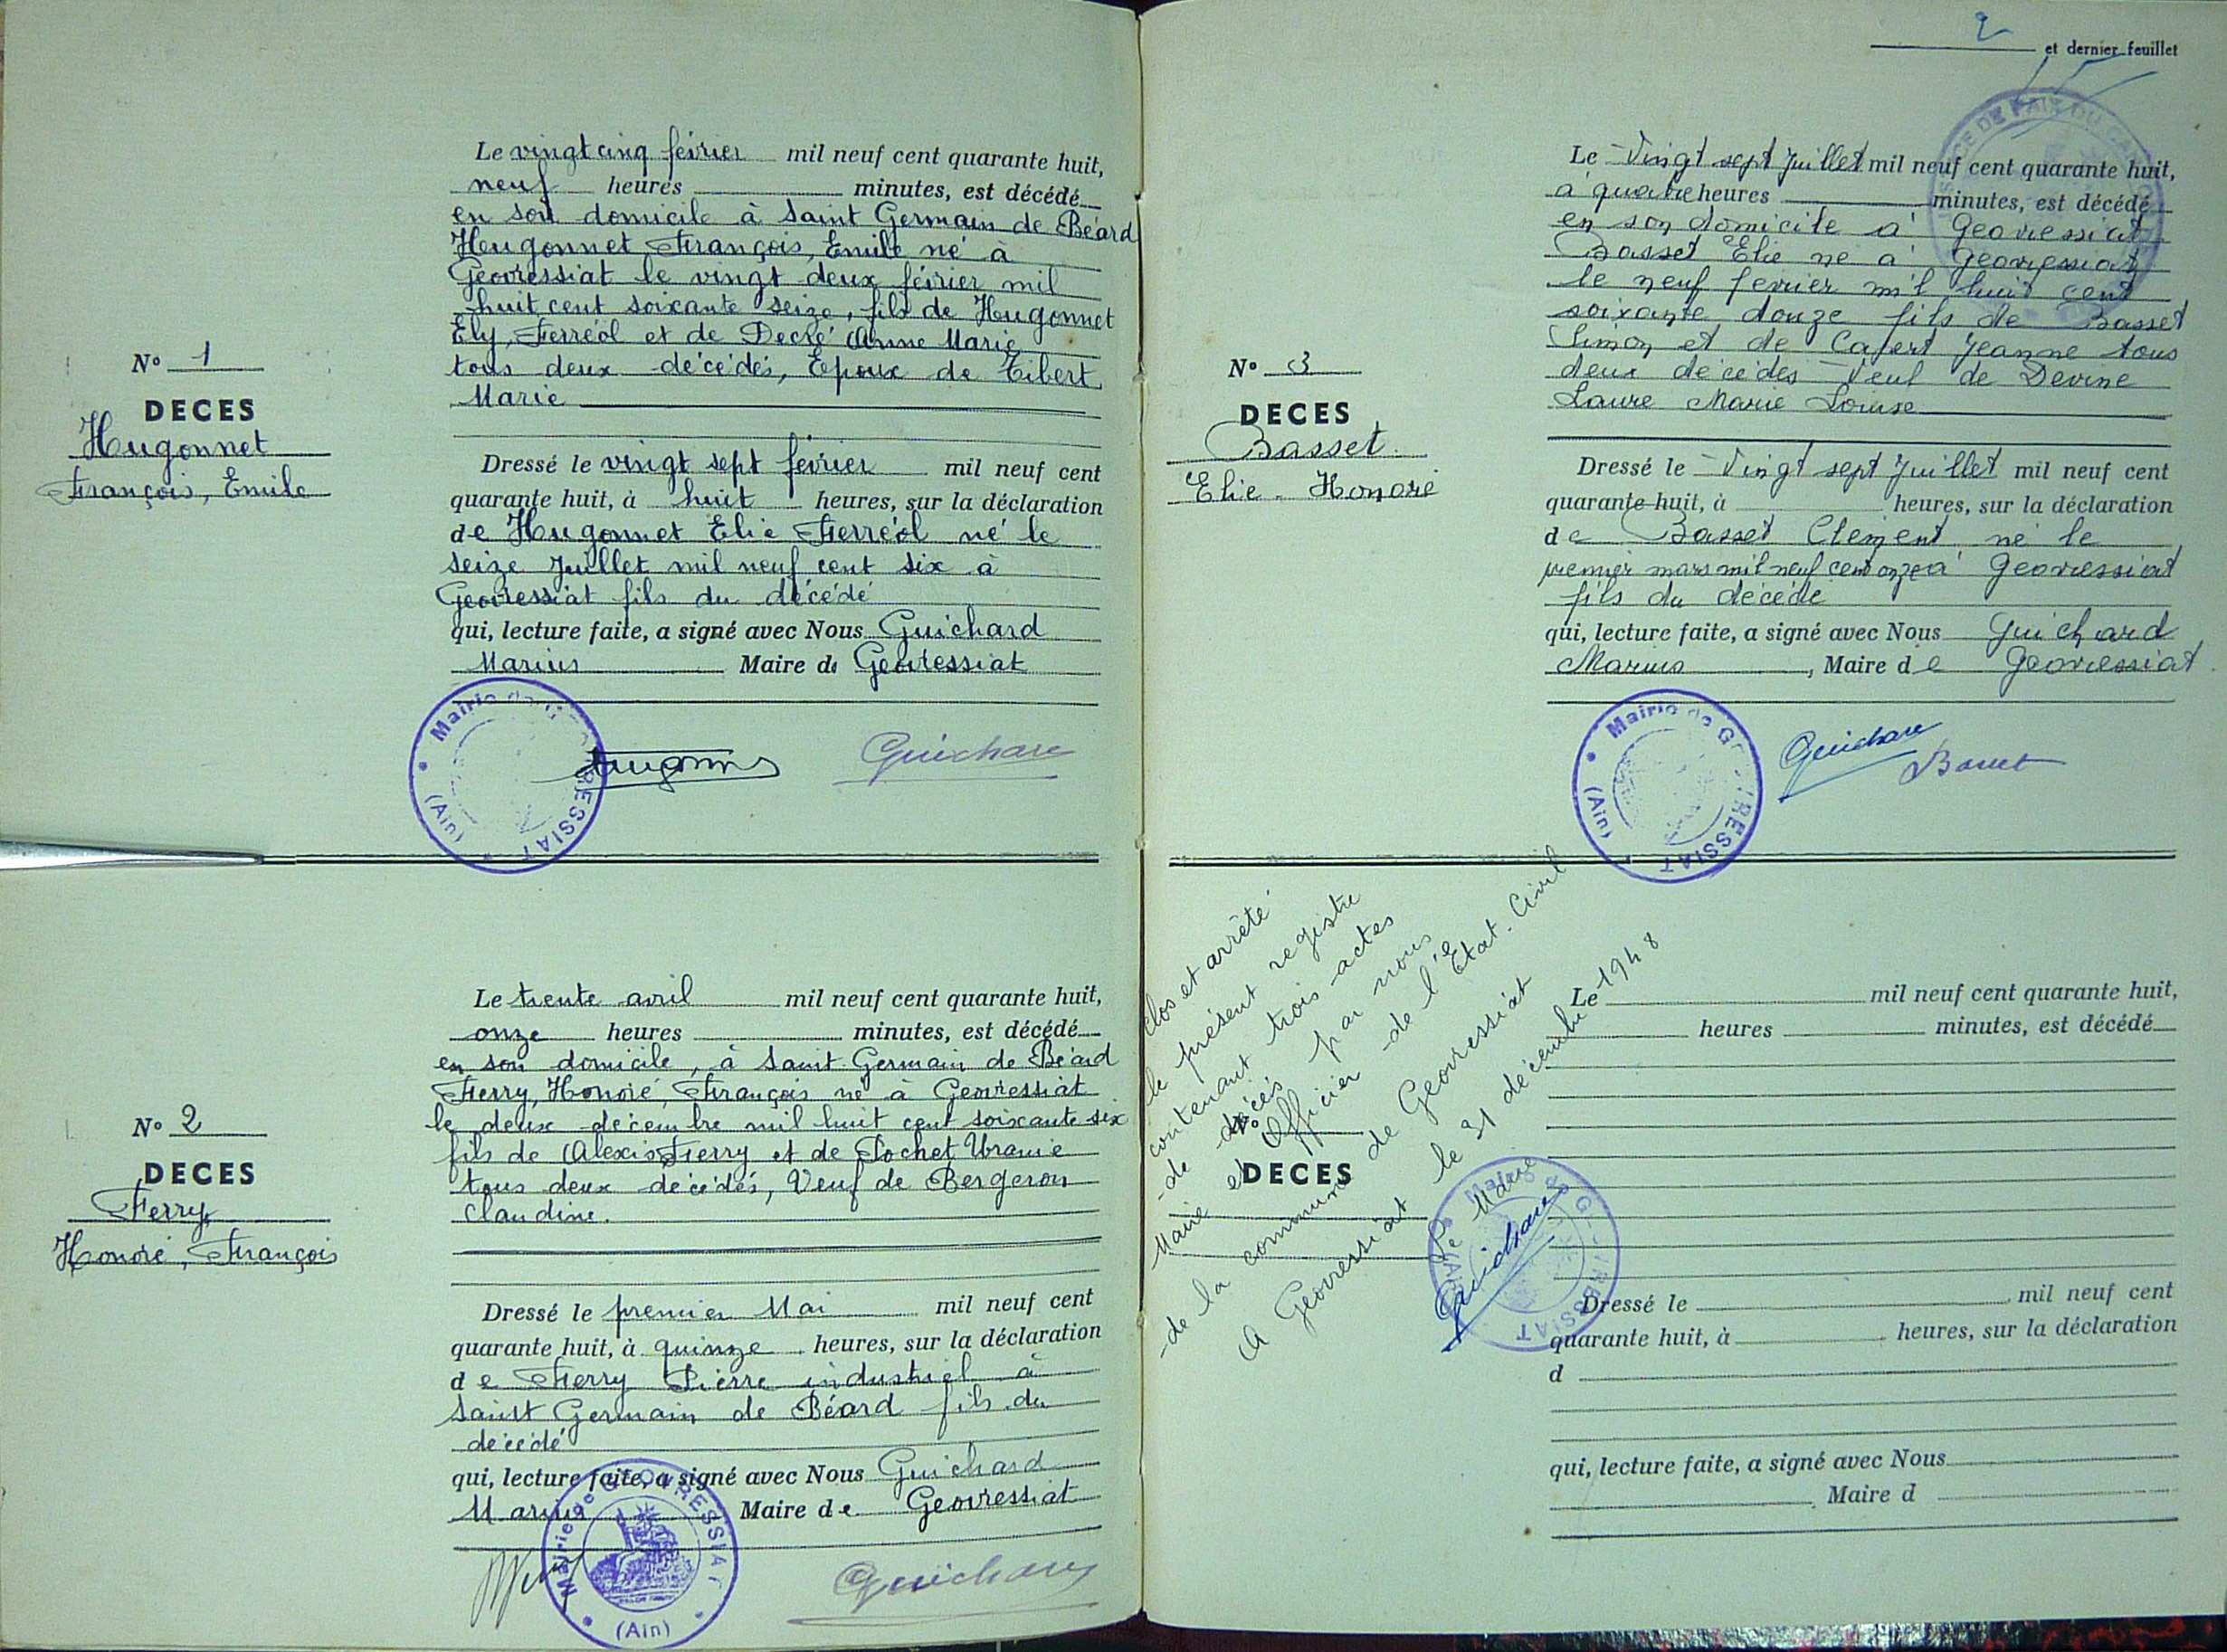 Le vingt cinq février mil neuf cent quarante huit,
neuf heures minutes, est décédé
en son domicile à Saint Germain de Béard
Hugonnet François, Emile né à
Géovressiat le vingt deux février mil
huit cent soixante seize, fils de Hugonnet
Ely, Ferréol et de Decré Anne Marie
tous deux décédés, Epoux de Tibert
Marie
N° 1
DECES
Hugonnet
François, Emile
Dressé le vingt sept février mil neuf cent
quarante huit, à huit heures, sur la déclaration
de Hugonnet Elie Ferréol né le
seize Juillet mil neuf cent six à
Géovressiat fils du décédé
qui, lecture faite, a signé avec Nous Guichard
Marius Maire de Géovressiat
Mairie de
RESSIAT
(Ain)
Guichard
Le trente avril mil neuf cent quarante huit,
onze heures minutes, est décédé
en son domicile, à Saint Germain de Béard
Ferry, Honoré, François né à Géovressiat
le deux décembre mil huit cent soixante six
fils de Alexis Ferry et de Pochet Uranie
tous deux décédés, Veuf de Bergeron
Claudine.
N° 2
DECES
Ferry
Honoré, François
Dressé le premier Mai mil neuf cent
quarante huit, à quinze heures, sur la déclaration
de Ferry Pierre industriel à
Saint Germain de Béard fils du
décédé
qui, lecture faite, a signé avec Nous Guichard
Marius Maire de Géovressiat
Mairie de GEOVRESSIAT
(Ain)
Guichard
2 et dernier feuillet
Le Vingt sept Juillet mil neuf cent quarante huit,
à quatre heures minutes, est décédé
en son domicile à Géovressiat
Basset Elie né à Géovressiat
le neuf fevrier mil huit cent
soixante douze fils de Basset
Simon et de Jeanne tous
deux décédés Veuf de Devine
Laure Marie Louise
N° 3
DECES
Basset
Elie Honoré
Dressé le Vingt sept Juillet mil neuf cent
quarante huit, à heures, sur la déclaration
de Basset Clément né le
premier mars mil neuf cent onze à Géovressiat
fils du décédé
qui, lecture faite, a signé avec Nous Guichard
Marius, Maire de Géovressiat
Mairie de G RESSIAT
(Ain)
Guichard
Basset
Clos et arrêté
le présent registre
contenant trois actes
de décès par nous
Maire et Officier de l'Etat-Civil
de la commune de Géovressiat
A Géovressiat le 31 décembre 1948
Le Maire
Guichard
Le mil neuf cent quarante huit,
heures minutes, est décédé
N°
DECES
Dressé le mil neuf cent
quarante huit, à heures, sur la déclaration
d
qui, lecture faite, a signé avec Nous
Maire d